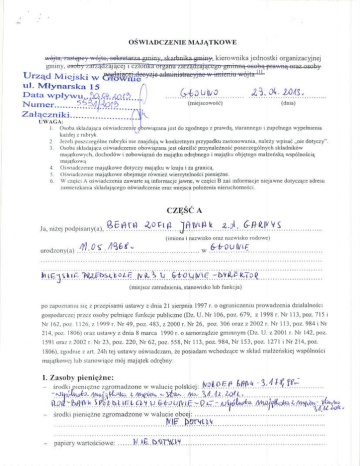 OŚWIADCZENIE MAJĄTKOWE
wójta, zastępcy wójta, sekretarza gminy, skarbnika gminy, kierownika jednostki organizacyjnej
gminy, osoby zarządzającej i członka organu zarządzającego gminną osobą prawną oraz osoby
wydającej decyzje administracyjne w imieniu wójta
Urząd Miejski w Głownie
ul. Młynarska 15
Data wpływu 2013
Numer
Załączniki
GŁOWNO 23.04.2013.
(miejscowość) (dnia)
UWAGA:
1. Osoba składająca oświadczenie obowiązana jest do zgodnego z prawdą, starannego i zupełnego wypełnienia
każdej z rubryk.
2. Jeżeli poszczególne rubryki nie znajdują w konkretnym przypadku zastosowania, należy wpisać „nie dotyczy".
3. Osoba składająca oświadczenie obowiązana jest określić przynależność poszczególnych składników
majątkowych, dochodów i zobowiązań do majątku odrębnego i majątku objętego małżeńską wspólnością
majątkową.
4. Oświadczenie majątkowe dotyczy majątku w kraju i za granicą.
5. Oświadczenie majątkowe obejmuje również wierzytelności pieniężne.
6. W części A oświadczenia zawarte są informacje jawne, w części B zaś informacje niejawne dotyczące adresu
zamieszkania składającego oświadczenie oraz miejsca położenia nieruchomości.
CZĘŚĆ A
Ja, niżej podpisany(a), BEATA ZOFIA JANIAK z d. GARNYS
(imiona i nazwisko oraz nazwisko rodowe)
urodzony(a) 11.05.1968r. w GŁOWNIE
MIEJSKIE PRZEDSZKOLE NR 3 W GŁOWNIE - DYREKTOR
(miejsce zatrudnienia, stanowisko lub funkcja)
po zapoznaniu się z przepisami ustawy z dnia 21 sierpnia 1997 r. o ograniczeniu prowadzenia działalności
gospodarczej przez osoby pełniące funkcje publiczne (Dz. U. Nr 106, poz. 679, z 1998 r. Nr 113, poz. 715 i
Nr 162, poz. 1126, z 1999 r. Nr 49, poz. 483, z 2000 r. Nr 26, poz. 306 oraz z 2002 r. Nr 113, poz. 984 i Nr
214, poz. 1806) oraz ustawy z dnia 8 marca 1990 r. o samorządzie gminnym (Dz. U. z 2001 r. Nr 142, poz.
1591 oraz z 2002 r. Nr 23, poz. 220, Nr 62, poz. 558, Nr 113, poz. 984, Nr 153, poz. 1271 i Nr 214, poz.
1806), zgodnie z art. 24h tej ustawy oświadczam, że posiadam wchodzące w skład małżeńskiej wspólności
majątkowej lub stanowiące mój majątek odrębny:
I. Zasoby pieniężne:
– środki pieniężne zgromadzone w walucie polskiej: NORDEA BANK
- wspólnota majątkowa z mężem - stan na 31.12.2012r.
BANK SPÓŁDZIELCZY W GŁOWNIE - wspólnota majątkowa z mężem
31.12.2012r.
– środki pieniężne zgromadzone w walucie obcej:
NIE DOTYCZY
– papiery wartościowe: NIE DOTYCZY